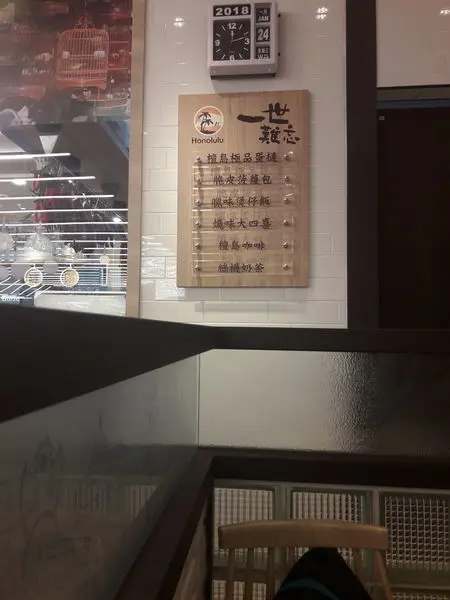 2018
JAN
24
12
3
6
9
一世
難忘
Honolulu
檀島極品蛋撻
脆皮菠蘿包
臘味煲仔飯
燒味大四喜
檀島咖啡
絲襪奶茶